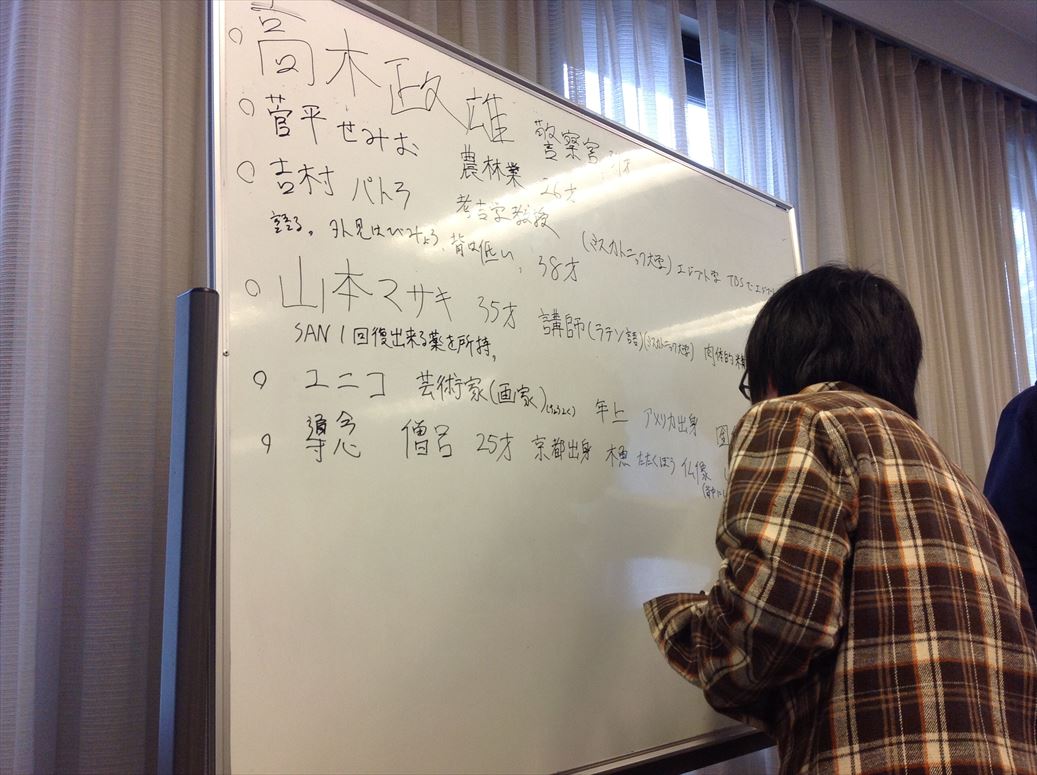 高木 政雄 警察官
菅平 せみお 農林業 26才
吉村 パトラ 考古学教授 (ミスカトニック大学) エジプト学
語る。外見はびみょう、背は低い、38才
山本マサキ 35才 講師(ラテン語)(ミスカトニック大学) 肉体的
SAN 1回復出来る薬を所持。
ユニコ 芸術家(画家) 年上 アメリカ出身
導念 僧呂 25才 京都出身 木魚 たたくぼう 仏像